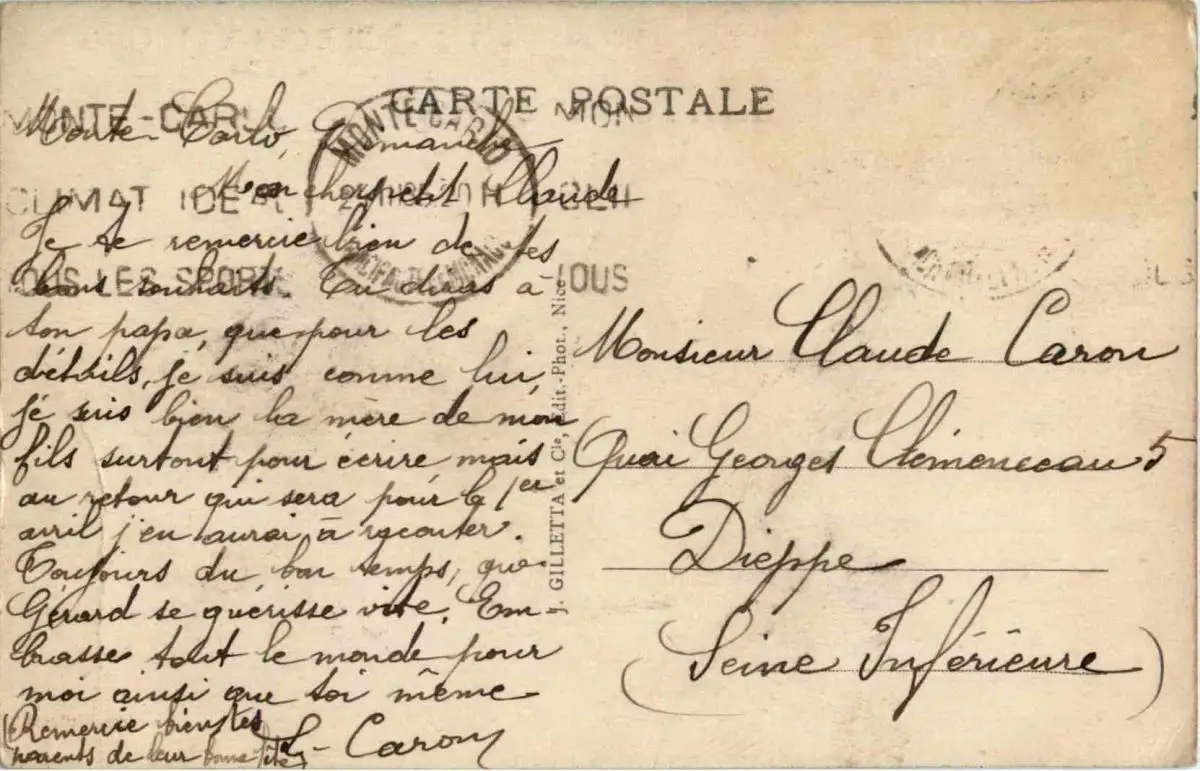 CARTE POSTALE
MONTE-CARLO
CLIMAT IDEAL
TOUS LES SPORTS
MONTE CARLO
MON
CLI
TOUS
Monte-Carlo, Dimanche
Mon cher petit Claude
Je te remercie bien de tes
bons souhaits. Tu diras à
ton papa, que pour les
détails, je suis comme lui,
je suis bien la mère de mon
fils surtout pour écrire mais
au retour qui sera pour le 1er
avril j'en aurai à raconter.
Toujours du bon temps, que
Gérard se guérisse vite. Em-
brasse tout le monde pour
moi ainsi que toi même
L. Caron
(Remercie bien tes
parents de leur bonne
J. GILLETTA et Cie, Édit.-Phot., Nice
Monsieur Claude Caron
Quai Georges Clémenceau 5
Dieppe
(Seine Inférieure)